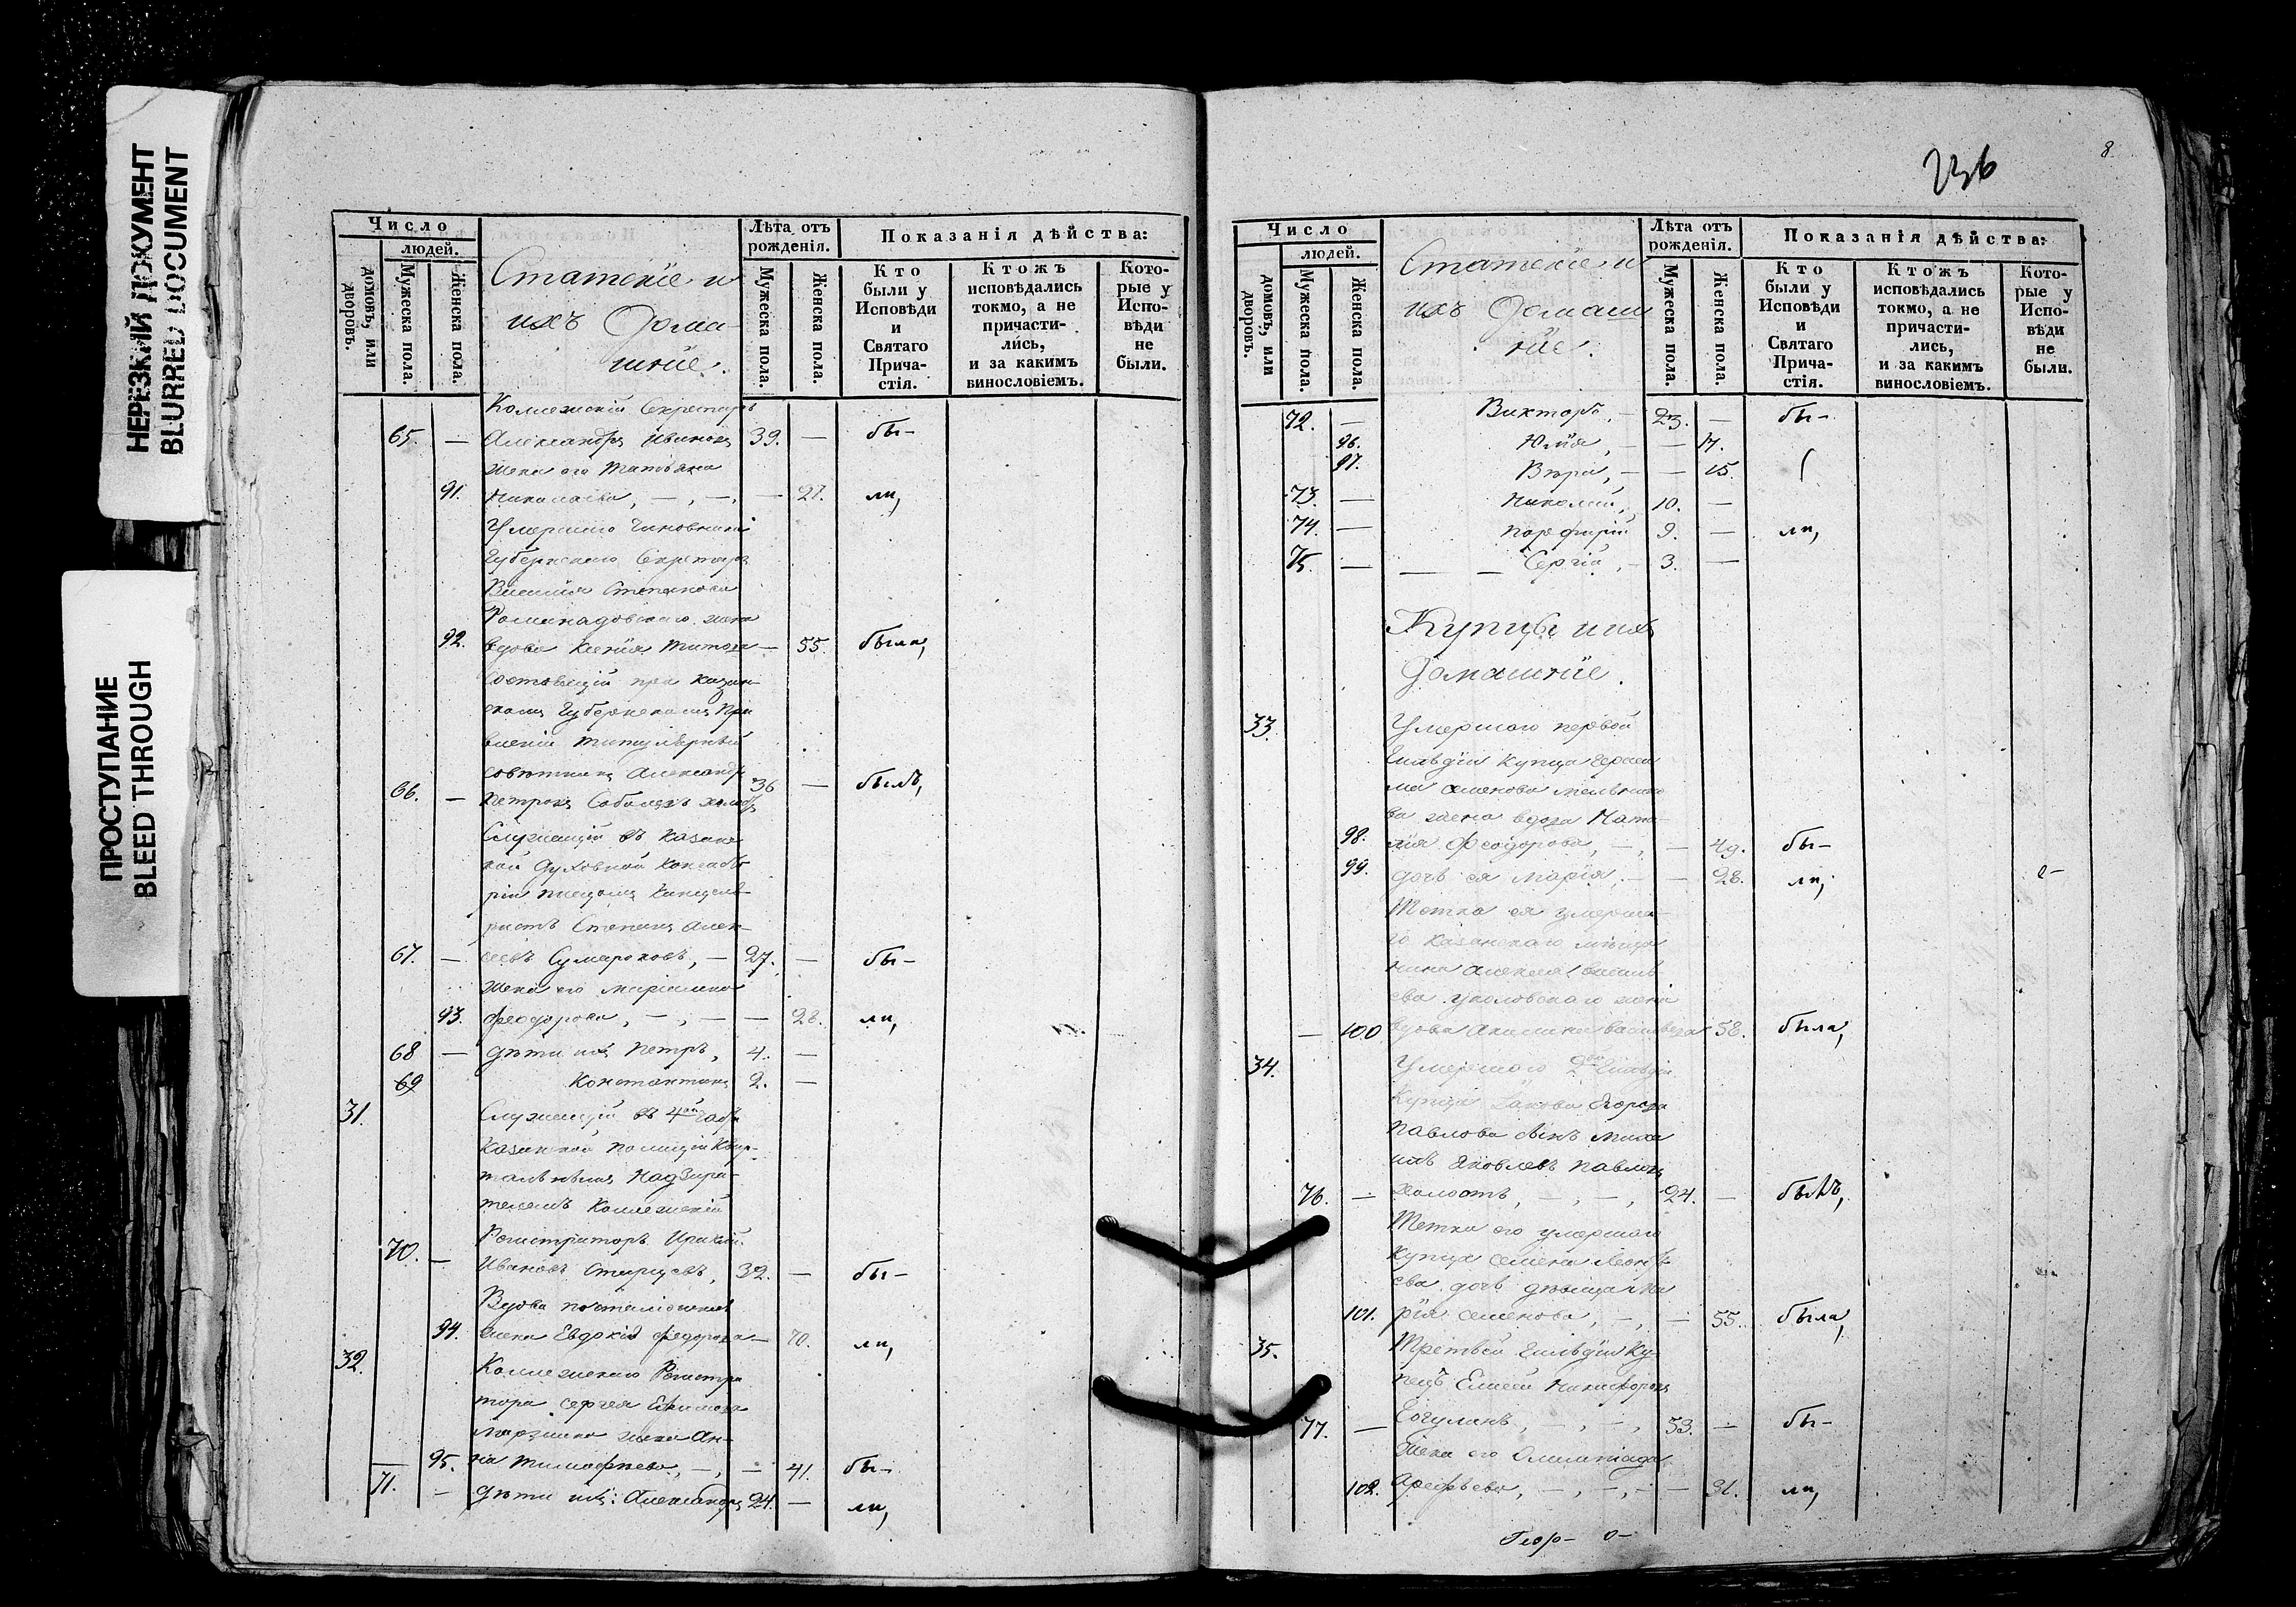 НЕРЕЗКИЙ ДОКУМЕНТ
BLURRED DOCUMENT
ПРОСТУПАНИЕ
BLEED THROUGH
Число
людей.
домовъ, или дворовъ.
Мужеска пола.
Женска пола.
Статскіе и
ихъ Дома-
шніе.
Лѣта отъ рожденія.
Мужеска пола.
Женска пола.
Показанія дѣйства:
Кто были у Исповѣди и Святаго Причастія.
Ктожъ исповѣдались токмо, а не причастились, и за какимъ винословіемъ.
Которые у Исповѣди не были.
Коллежскій Секретарь
65. — Александръ Ивановъ 39. — бы-
жена его Татьяна
91. Николаева, — , — , — 27. ли,
Умершаго Чиновника
Губернскаго Секретаря
Василія Степанова
жена
92. вдова Ксенія Титова — 55. была,
Состоящій при Казан-
скомъ Губернскомъ Пра
вленіи титулярный
совѣтникъ Александръ
66. — Петровъ Соболевъ холостъ 36 — былъ,
Служащій въ Казанс
кой Духовной Консисто
ріи писцомъ Канцеля
ристъ Степанъ Алек-
67. — сѣевъ Сумароковъ, — 27. — бы-
жена его Маріамна
93. Феодорова, — , — — 28. ли,
68 — дѣти ихъ Петръ, 4. —
69 Константинъ 2. —
31. Служащій въ 4ой части
Казанской полиціи Квар-
тальнымъ Надзира-
телемъ Коллежскій
Регистраторъ
70. — Ивановъ 32. — бы-
Вдова
94. жена Евдокія Федорова — 70. ли,
32. Коллежскаго Регистра
тора Сергея Ефимова
жена Ан-
95. на Тимофѣева, — , — 41. бы-
71. — дѣти ихъ: Александръ 24. — ли,
236
8
Число
людей.
домовъ, или дворовъ.
Мужеска пола.
Женска пола.
Статскіе и
ихъ Домаш
ніе.
Лѣта отъ рожденія.
Мужеска пола.
Женска пола.
Показанія дѣйства:
Кто были у Исповѣди и Святаго Причастія.
Ктожъ исповѣдались токмо, а не причастились, и за какимъ винословіемъ.
Которые у Исповѣди не были.
72. — Викторъ, — 23. — бы-
96. Юлія, — — 17.
97. Вѣра, — — 15.
73. — Николай, 10. —
74. — Порфирій 9. — ли,
75. — — — Сергій, — 3. —
Купцы и ихъ
домашніе.
33. Умершаго первой
Гильдіи Купца Гераси
ма Семенова Мельнико
ва жена вдова Ната-
98. лія Феодорова, — , — 49. бы-
99. дочь ея Марія, — — 28. ли,
Тетка ея умерша-
го Казанскаго мѣща
нина Алексея Василь
ева жена
— 100 вдова Акилина Васильева 58. была,
34. Умершаго 2ой Гильдіи
Купца Якова Егорова
Павлова сынъ Миха
илъ Яковлевъ Павловъ
76. — холостъ, — , — , 24. — былъ,
Тетка его умершаго
Купца Семена Леонть
ева дочь дѣвица Ма
101. рія Семенова, — , — 55. была,
35. Третьей Гильдіи Ку
пецъ Елисей Никифоровъ
77. — — , — , 53. — бы-
Жена его Олимпіада
102. Арефьева, — , — , — 31. ли,